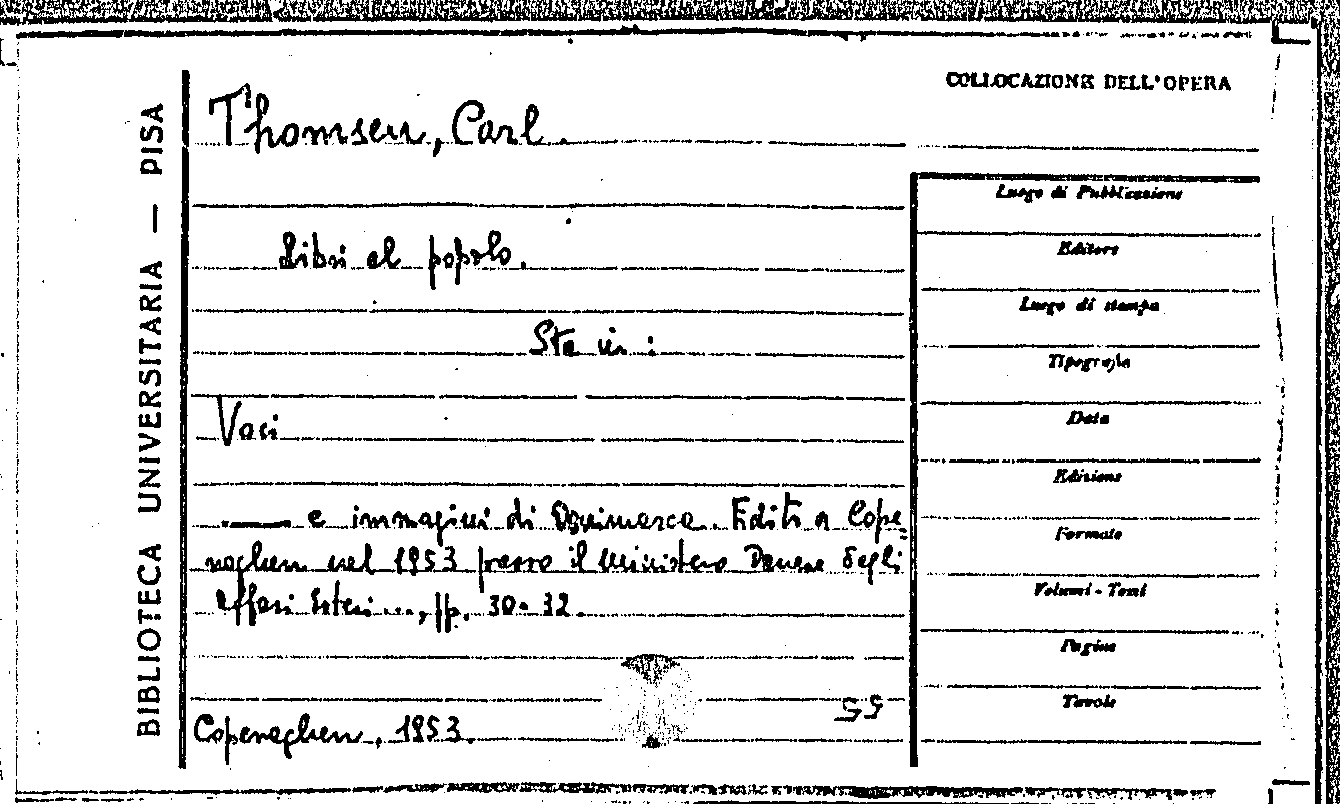 COLLOCAZIONE DELL'OPERA
BIBLIOTECA UNIVERSITARIA — PISA
Thomsen, Carl.
Libri al popolo.
Sta in:
Voci
—— e immagini di Danimarca. Editi a Cope=
naghen nel 1953 presso il Ministero Danese degli
Affari Esteri..., pp. 30-32.
Copenaghen, 1953.
55
Luogo di Pubblicazione
Editore
Luogo di stampa
Tipografia
Data
Edizione
Formato
Volumi - Tomi
Pagine
Tavole